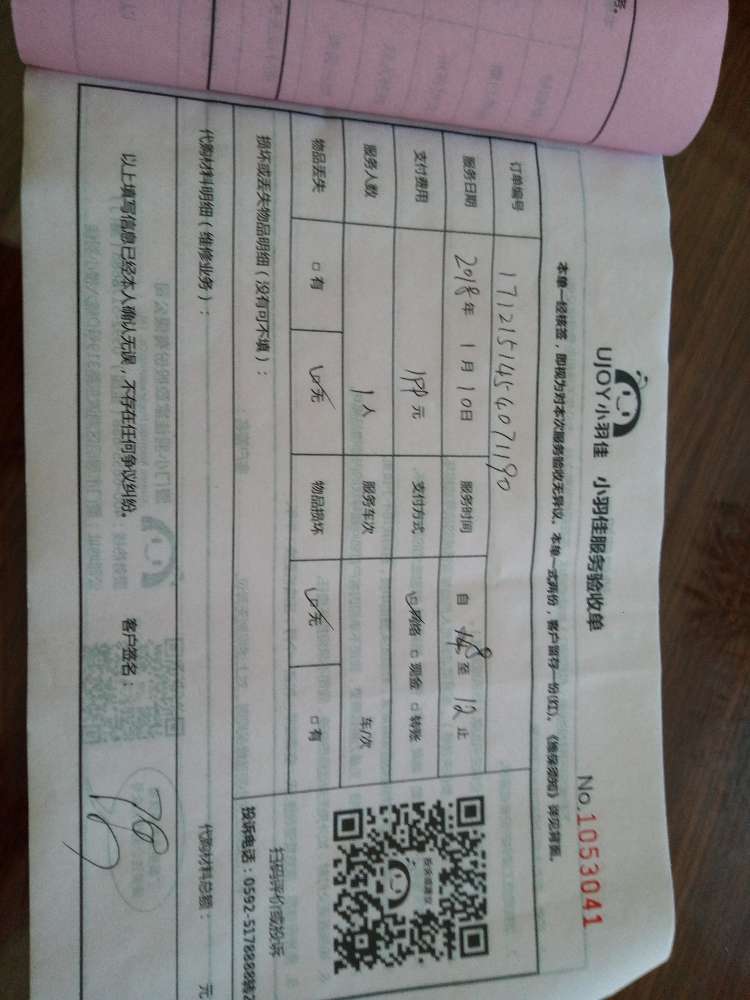 UJOY小羽佳 小羽佳服务验收单
No.1053041
本单一经核签，即视为对本次服务验收无异议。本单一式两份，客户留存一份(红)。《维保须知》详见背面。
订单编号 171215145407190
服务日期 2018年 1月 10日 服务时间 自 至 12 止
支付费用 元 支付方式 网络 现金 转账
服务人数 1人 服务车次 车/次
物品丢失 有 无 物品损坏 无 有
损坏或丢失物品明细（没有可不填）：
扫码评价或投诉
投诉电话：0592-5178888转2
代购材料明细（维修业务）： 代购材料总额： 元
以上填写信息已经本人确认无误，不存在任何争议纠纷。 客户签名：